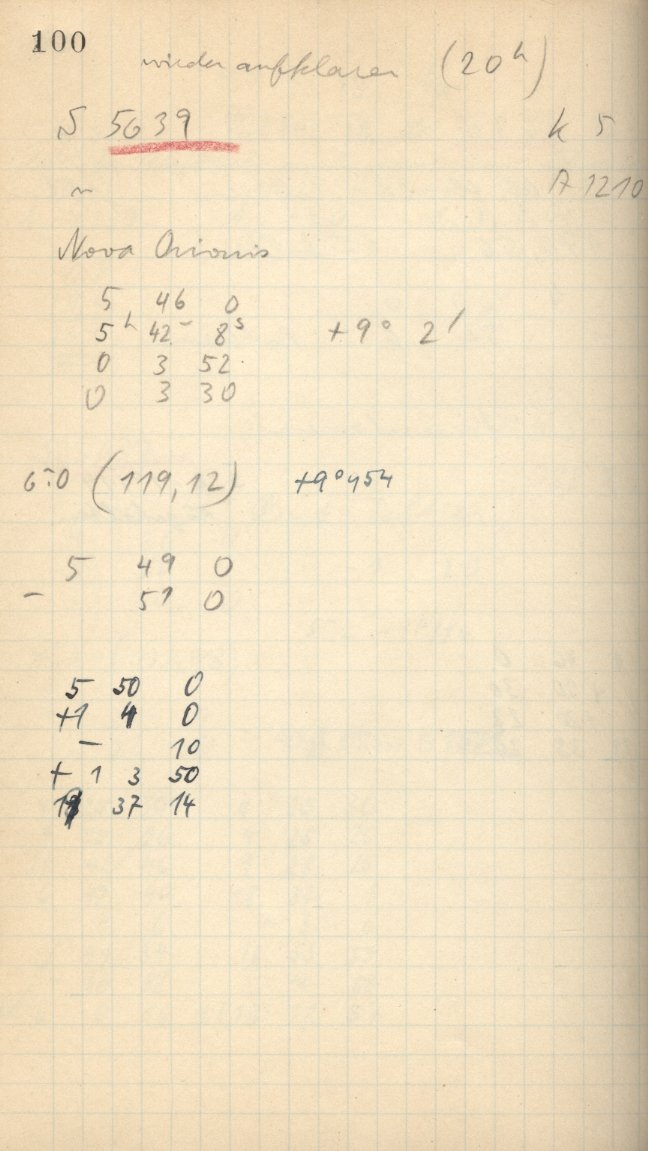 100
wieder aufklaren (20h)
S 5639 K 5
~ A 1210
Nova Orionis
5 46 0
5h 42- 8s +9° 2'
0 3 52
0 3 30
6:0 (119,12) +9°454
5 49 0
- 51 0
5 50 0
+1 4 0
- 10
+ 1 3 50
37 14